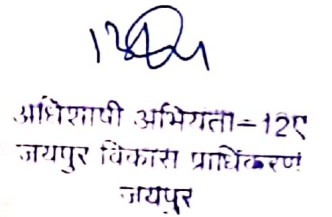 अधिशाषी अभियंता-12ए
जयपुर विकास प्राधिकरण
जयपुर